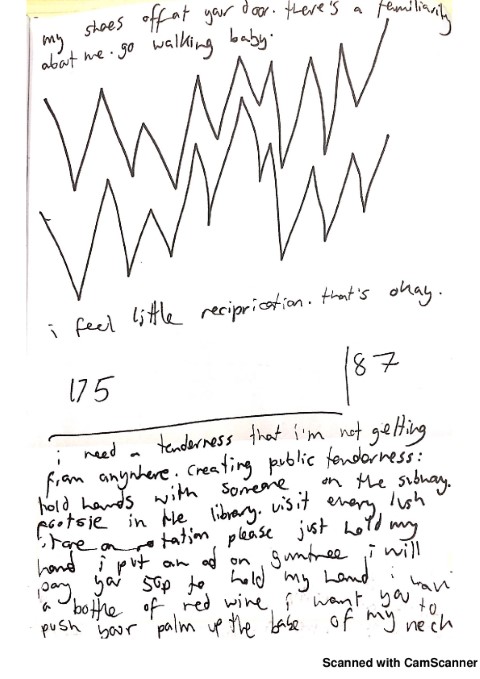 my shoes off at your door. there's a familiarity
about me. go walking baby.
i feel little recipriction. that's okay.
175
187
i need a tenderness that i'm not getting
from anywhere. creating public tenderness:
hold hands with someone on the subway.
footsie in the library. visit every lush
store on rotation please just hold my
hand i put an ad on gumtree i will
pay you 50p to hold my hand i have
a bottle of red wine i want you to
push your palm up the base of my neck
Scanned with CamScanner